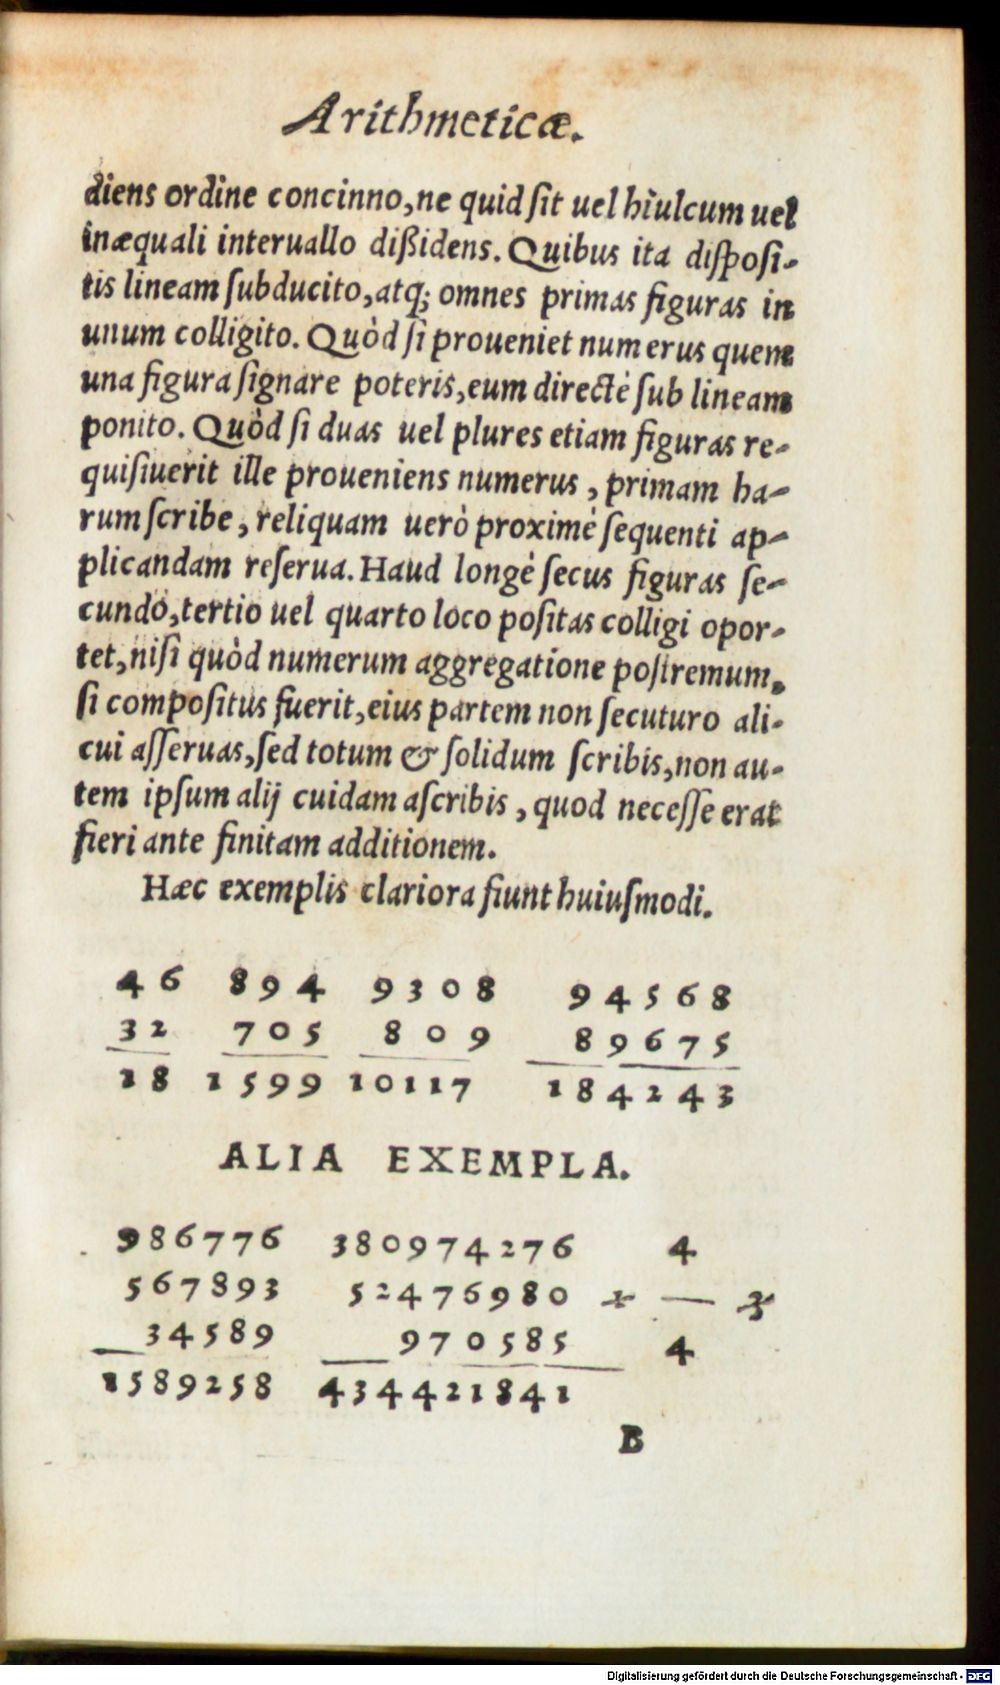 Arithmeticæ.
diens ordine concinno,ne quid ſit uel hìulcum uel
inæquali interuallo dißidens. Quibus ita diſpoſi-
tis lineam ſubducito,atq; omnes primas figuras in
unum colligito. Quòd ſi proueniet numerus quem
una figura ſignare poteris,eum directè ſub lineam
ponito. Quòd ſi duas uel plures etiam figuras re-
quiſiuerit ille proueniens numerus , primam ha-
rum ſcribe, reliquam uerò proximè ſequenti ap-
plicandam reſerua. Haud longè ſecus figuras ſe-
cundo,tertio uel quarto loco poſitas colligi opor-
tet,niſi quòd numerum aggregatione poſtremum,
ſi compoſitus fuerit,eius partem non ſecuturo ali-
cui aſſeruas,ſed totum & ſolidum ſcribis,non au-
tem ipſum alij cuidam aſcribis , quod neceſſe erat
fieri ante finitam additionem.
Hæc exemplis clariora fiunt huiuſmodi.
46 894 9308 94568
32 705 809 89675
18 1599 10117 184243
ALIA EXEMPLA.
986776 380974276 4
567893 52476980
34589 970585 4
1589258 434421841
B
Digitalisierung gefördert durch die Deutsche Forschungsgemeinschaft - DFG